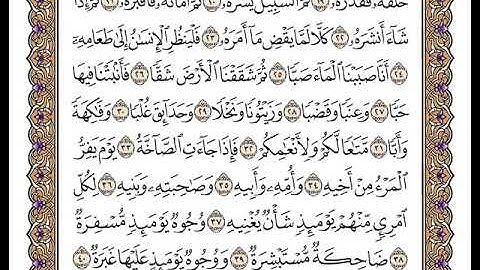 خَلَقَهُۥ فَقَدَّرَهُۥ ١٩ ثُمَّ ٱلسَّبِيلَ يَسَّرَهُۥ ٢٠ ثُمَّ أَمَاتَهُۥ فَأَقۡبَرَهُۥ ٢١ ثُمَّ إِذَا
شَآءَ أَنشَرَهُۥ ٢٢ كَلَّا لَمَّا يَقۡضِ مَآ أَمَرَهُۥ ٢٣ فَلۡيَنظُرِ ٱلۡإِنسَٰنُ إِلَىٰ طَعَامِهِۦٓ
٢٤ أَنَّا صَبَبۡنَا ٱلۡمَآءَ صَبّٗا ٢٥ ثُمَّ شَقَقۡنَا ٱلۡأَرۡضَ شَقّٗا ٢٦ فَأَنۢبَتۡنَا فِيهَا
حَبّٗا ٢٧ وَعِنَبٗا وَقَضۡبٗا ٢٨ وَزَيۡتُونٗا وَنَخۡلٗا ٢٩ وَحَدَآئِقَ غُلۡبٗا ٣٠ وَفَٰكِهَةٗ
وَأَبّٗا ٣١ مَّتَٰعٗا لَّكُمۡ وَلِأَنۡعَٰمِكُمۡ ٣٢ فَإِذَا جَآءَتِ ٱلصَّآخَّةُ ٣٣ يَوۡمَ يَفِرُّ
ٱلۡمَرۡءُ مِنۡ أَخِيهِ ٣٤ وَأُمِّهِۦ وَأَبِيهِ ٣٥ وَصَٰحِبَتِهِۦ وَبَنِيهِ ٣٦ لِكُلِّ
ٱمۡرِيٕٖ مِّنۡهُمۡ يَوۡمَئِذٖ شَأۡنٞ يُغۡنِيهِ ٣٧ وُجُوهٞ يَوۡمَئِذٖ مُّسۡفِرَةٞ
٣٨ ضَاحِكَةٞ مُّسۡتَبۡشِرَةٞ ٣٩ وَوُجُوهٞ يَوۡمَئِذٍ عَلَيۡهَا غَبَرَةٞ ٤٠